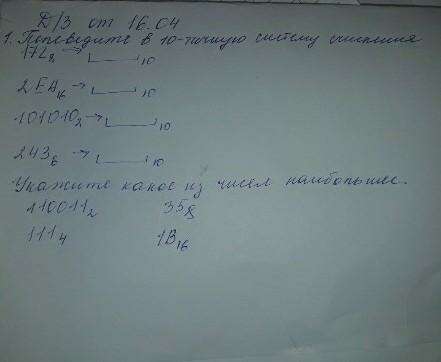 Д/З от 16.04
1. Переведите в 10-тичную систему счисления
172₈ → [___]₁₀
2EA₁₆ → [___]₁₀
101010₂ → [___]₁₀
243₆ → [___]₁₀
Укажите какое из чисел наибольшее.
110011₂ 35₈
111₄ 1B₁₆